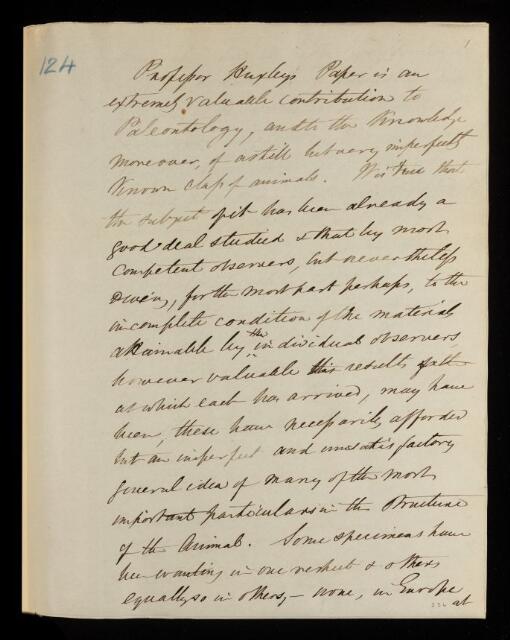 124
1
Professor Huxley's Paper is an
extremely valuable contribution to
Paleontology, and to the Knowledge
moreover, of a still but very imperfectly
Known class of animals. It is true that
the subject has been already a
good deal studied & that by most
competent observers, but nevertheless
owing, for the most part perhaps, to the
incomplete condition of the materials
attainable by the individual observers,
however valuable results
at which each has arrived, may have
been, these have necessarily afforded
but an imperfect and unsatisfactory
general idea of many of the most
important particulars in the Structure
of the Animal. Some specimens have
been wanting in one respect & others
equally so in others, – none, in Europe
at